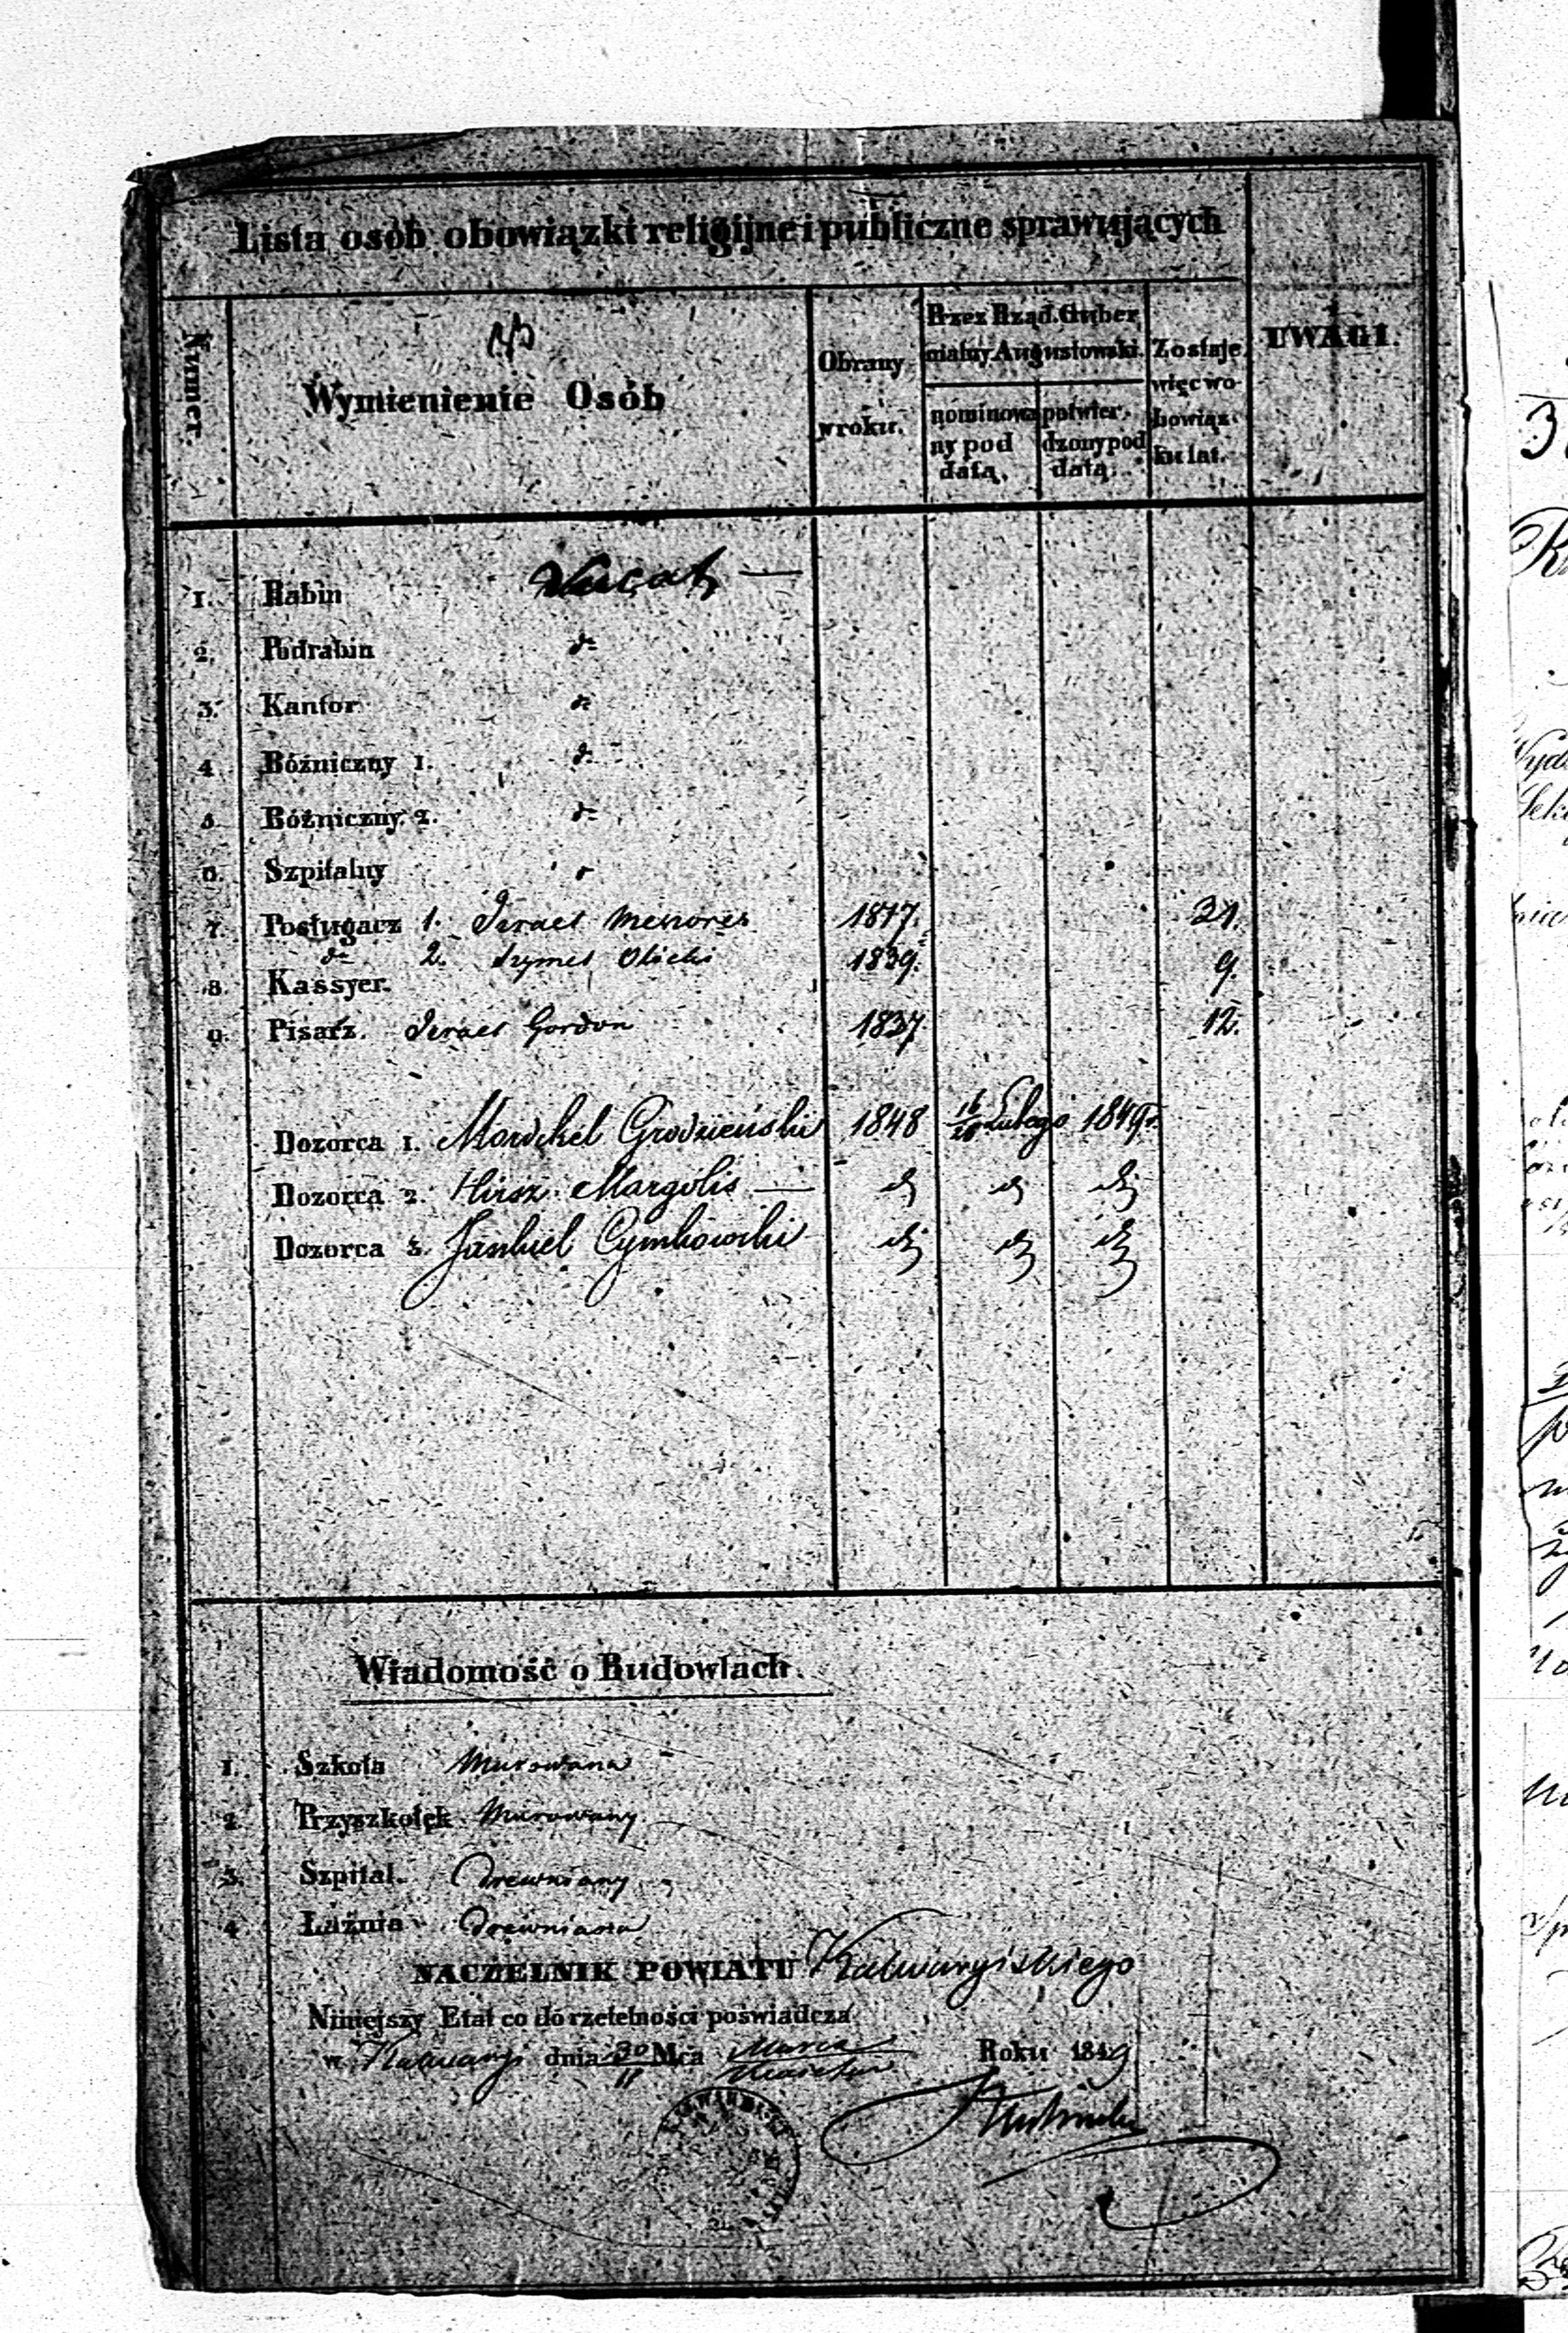 Lista osób obowiązki religijne i publiczne sprawujących
Numer.
Wymienienie Osób
Obrany w roku.
Przez Rząd Guber
nialny Augustowski.
nominowa
ny pod
datą.
potwier.
dzony pod
datą.
Zostaje
więc w o-
bowiąz-
ku lat.
UWAGI.
1. Rabin Vacat —
2. Podrabin do
3. Kantor do
4. Bóżniczny 1. do
5. Bóżniczny 2. do
6. Szpitalny
7. Posługacz 1. Izrael 1817. 31.
do 2. 1839. 9.
8. Kassyer.
9. Pisarz. Izrael Gordon 1837 12.
Dozorca 1. Mordchel Grodzieński 1848 16/28 Lutego 1849 r.
Dozorca 2. Hirsz Margolis — do do do
Dozorca 3. Jankiel Cymkowski do do do
Wiadomość o Budowlach.
1. Szkoła Murowana
2. Przyszkołek Murowany
3. Szpital. Drewniany
4. Łaźnia Drewniana
NACZELNIK POWIATU Kalwaryiskiego
Niniejszy Etat co do rzetelności poświadcza
w Kalwaryi dnia 30/11 Mca Marca/Kwietnia Roku 1849